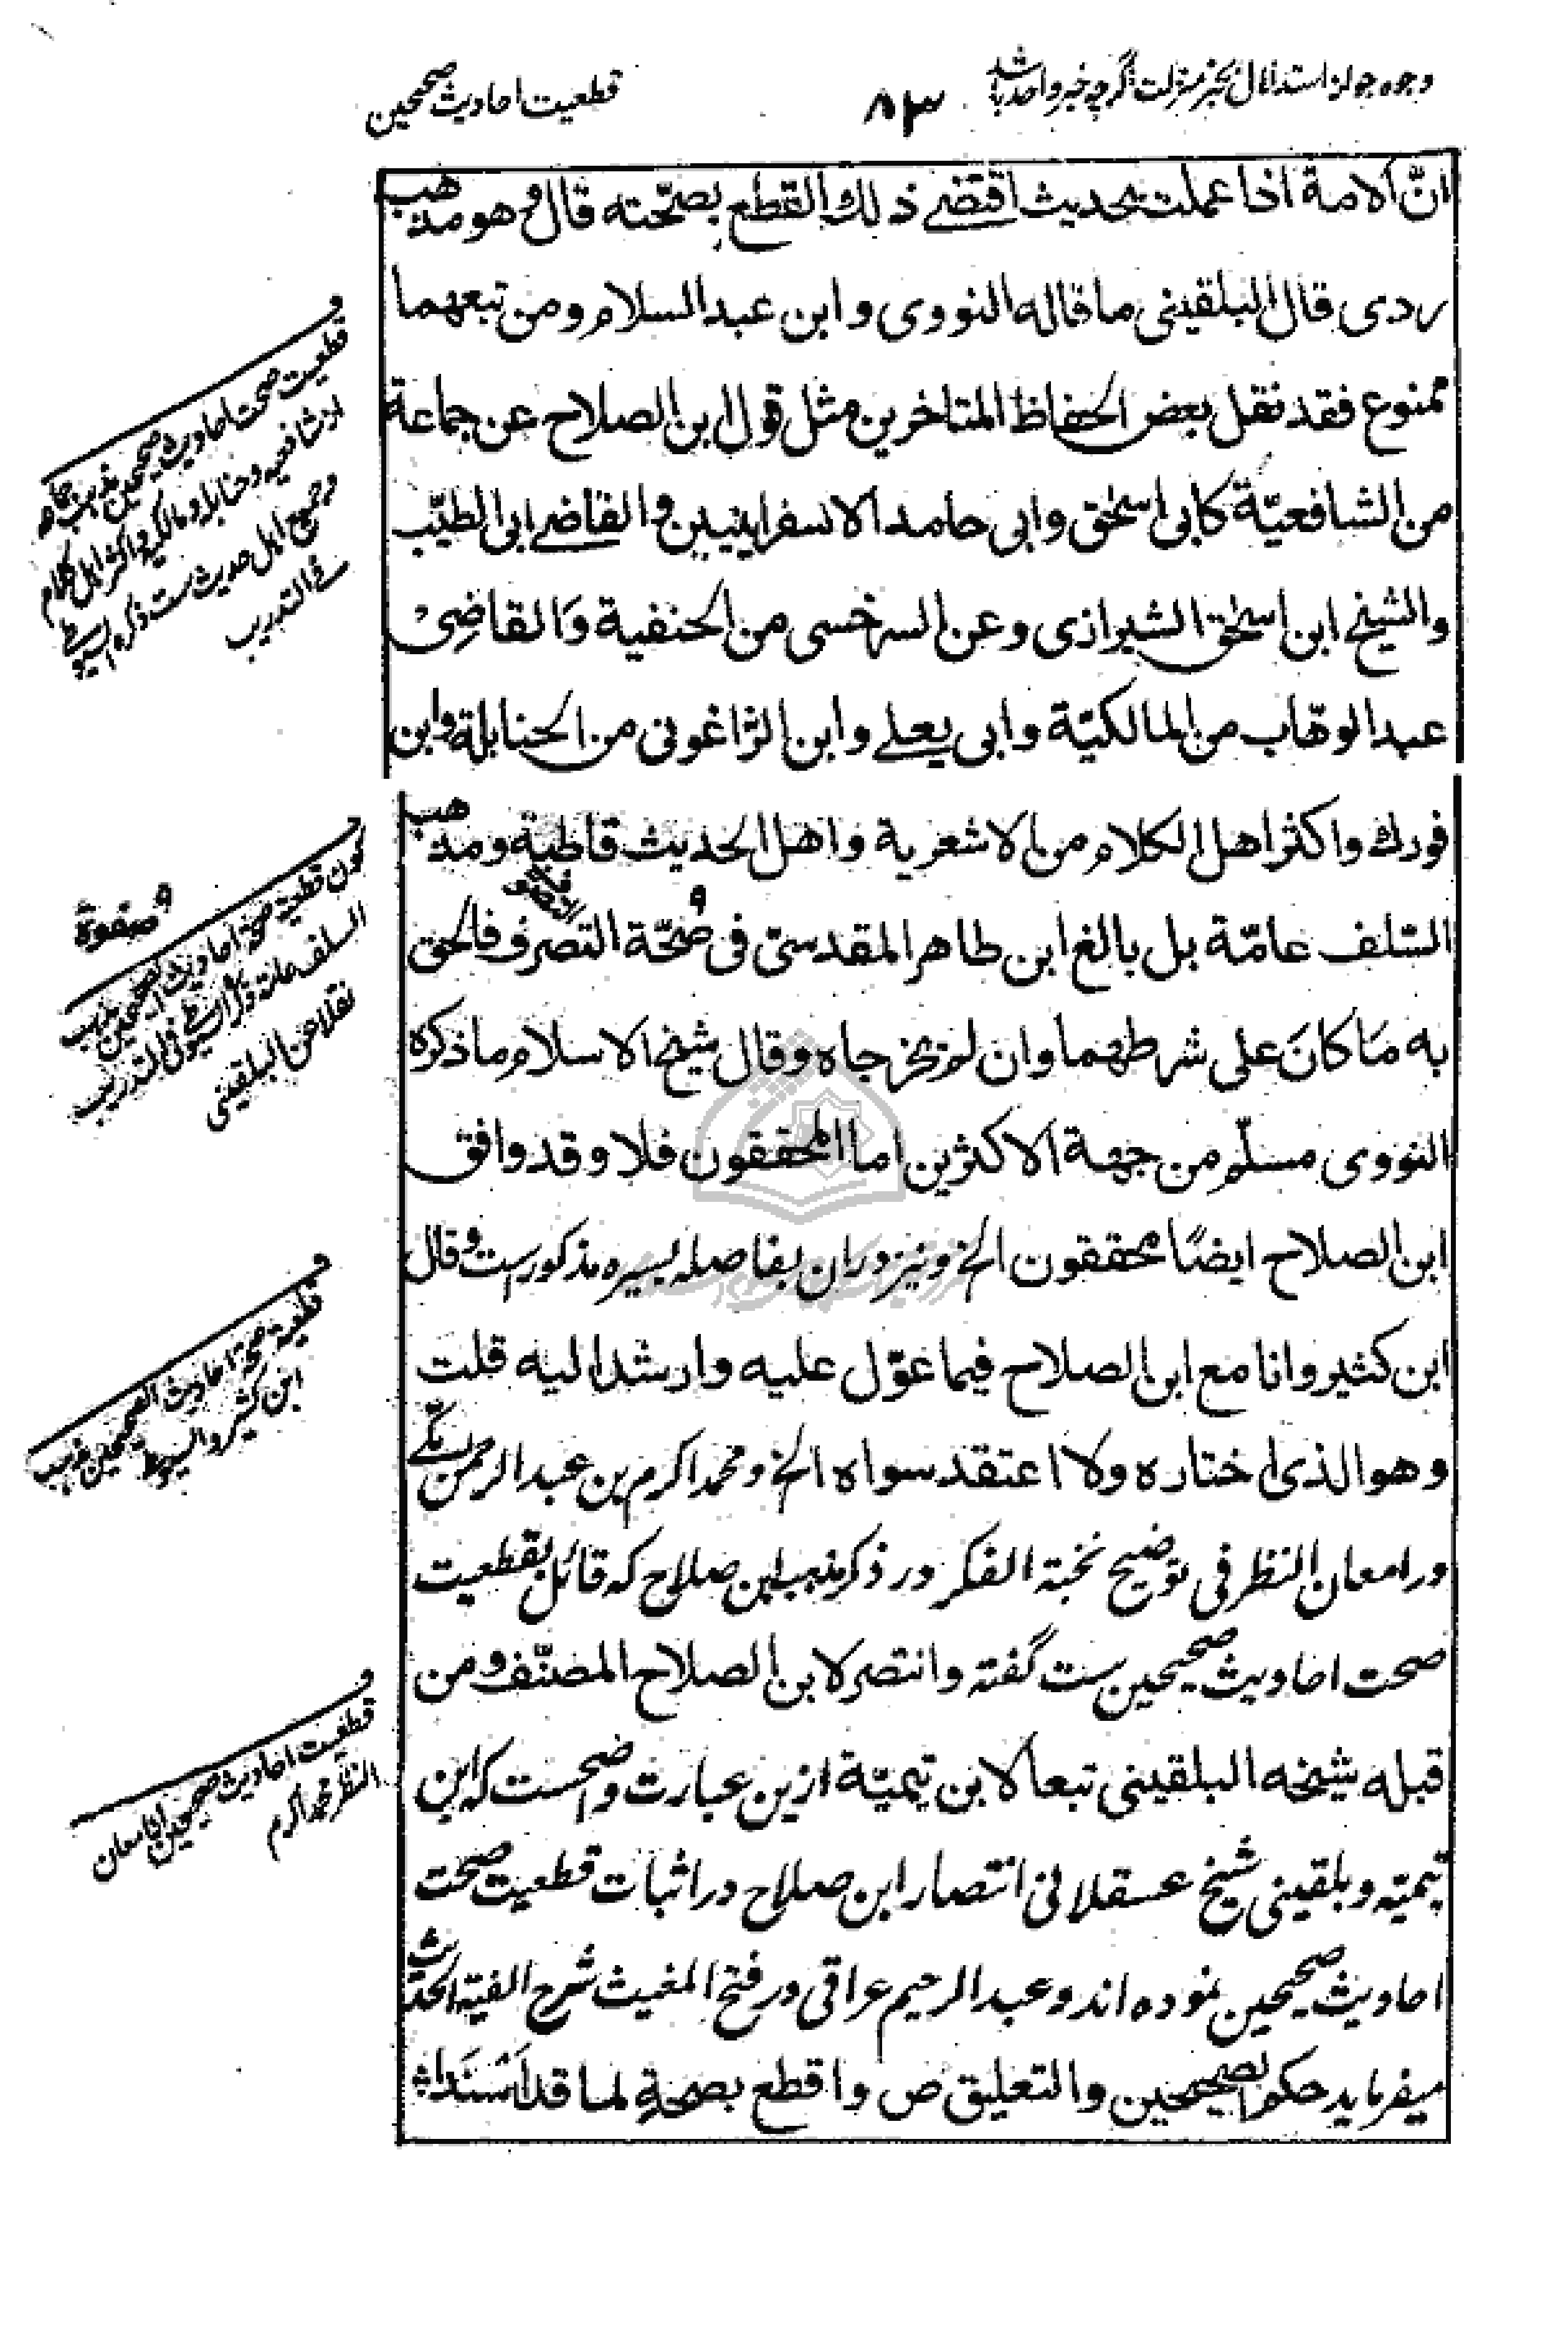 وجوه جواز استدلال بخبر منزلت اگرچه خبر واحد باشد
۸۳
قطعیت احادیث صحیحین
انّ الامة اذا عملت بحدیث اقتضے ذلك القطع بصحّته قال وهو مذهب
ردی قال البلقینی ما قاله النووی وابن عبد السلام ومن تبعهما
ممنوع فقد نقل بعض الحفاظ المتاخرین مثل قول ابن الصلاح عن جماعة
من الشافعیّة کابی اسحٰق وابی حامد الاسفراینیین والقاضے ابی الطیّب
والشیخ ابن اسحٰق الشیرازی وعن السرخسی من الحنفیة وَالقاضِیْ
عبد الوهّاب من المالکیّة وابی یعلے وابن الزاغونی من الحنابلة وابن
فورك واکثر اهل الکلام من الاشعریة واهل الحدیث قاطبة ومذهب
السّلف عامّة بل بالغ ابن طاهر المقدسیّ فی صُحّة التصرف فالحق
به مَا کانَ علی شرطهما وان لم یخرجاه وقال شیخ الاسلام ما ذکره
النووی مسلّم من جهة الاکثرین اما المحققون فلا وقد وافق
ابن الصلاح ایضًا محققون الخ ونیز دران بفاصله یسیره مذکورست وقال
ابن کثیر وانا مع ابن الصلاح فیما عوّل علیه وارشد الیه قلت
وهو الذی اختاره ولا اعتقد سواه الخ ومحمد اکرم بن عبد الرحمن مکّے
در امعان النظر فی توضیح نخبة الفکر در ذکر مذهب ابن صلاح که قائل بقطعیت
صحت احادیث صحیحین ست گفته وانتصر لابن الصلاح المصنّف ومن
قبله شیخه البلقینی تبعا لابن تیمیّة ازین عبارت واضحست که ابن
تیمیّه وبلقینی شیخ عسقلانی انتصار ابن صلاح در اثبات قطعیت صحت
احادیث صحیحین نموده اند وعبد الرحیم عراقی در فتح المغیث شرح الفیة الحدیث
میفرماید حکم الصحیحین والتعلیق ص واقطع بصحةٍ لما قد اَسْنَدَا ش
و
قطعیت صحت احادیث صحیحین مذهب جماعه
از شافعیه وحنابله ومالکیه واکثر اهل کلام
وجمیع اهل حدیث ست ذکره السیوطے
فے التدریب
و صفوة
کون قطعیة صحة احادیث الصحیحین مذهب
السلف عامة ذکره السیوطے فی التدریب
نقلا عن البلقینی
و
قطعیة صحة احادیث الصحیحین مذهب
ابن کثیر والسیوطے
و
قطعیت احادیث صحیحین از امعان
النظر محمد اکرم